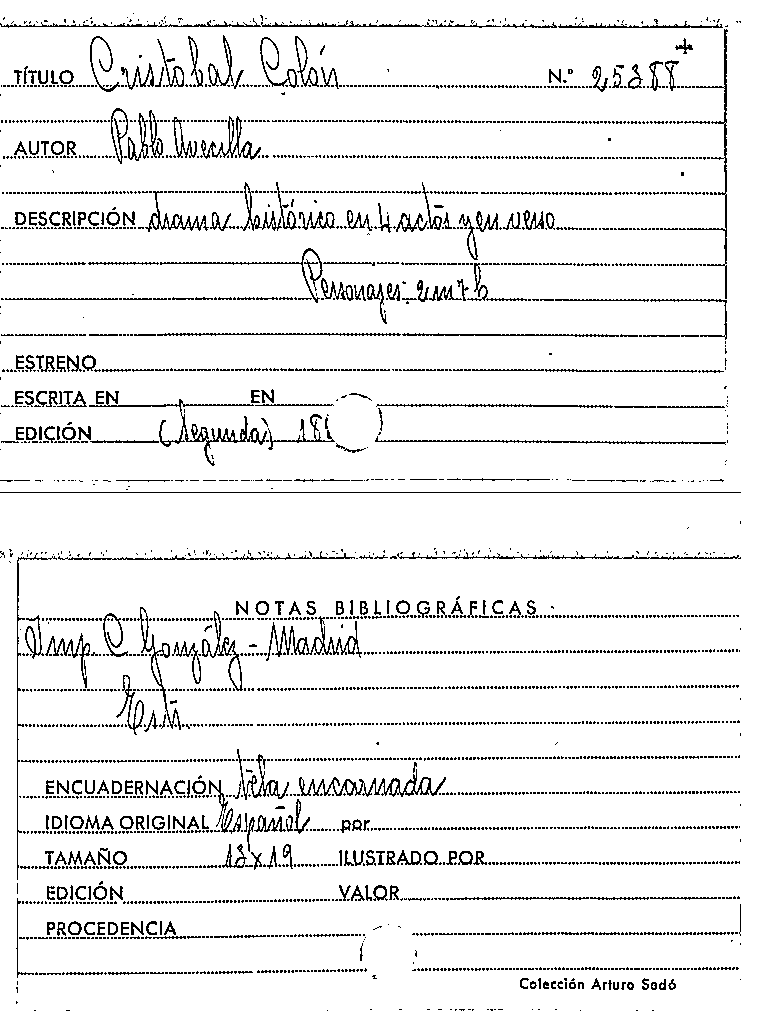 TÍTULO Cristobal Colón N.º 25388
AUTOR Pablo Avecilla
DESCRIPCIÓN drama histórico en 4 actos y en verso
Personajes: 2 m 7 h
ESTRENO
ESCRITA EN EN
EDICIÓN (Segunda) 18
NOTAS BIBLIOGRÁFICAS
Imp C González - Madrid
ENCUADERNACIÓN tela encarnada
IDIOMA ORIGINAL Español por
TAMAÑO 13 x 19 ILUSTRADO POR
EDICIÓN VALOR
PROCEDENCIA
Colección Arturo Sedó